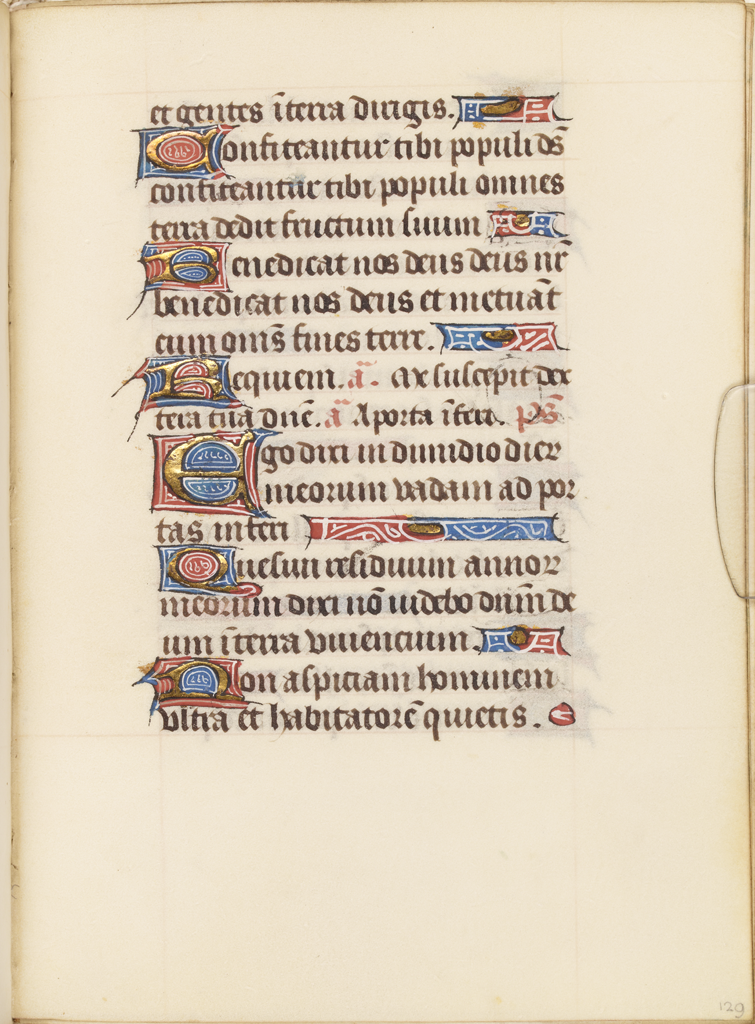 et gentes ĩ terra dirigis.
Confiteantur tibi populi ds̃
confiteantur tibi populi omnes
terra dedit fructum suum
Benedicat nos deus deus nr̃
benedicat nos deus et metuãt
eum om̃s fines terre.
Requiem. ã. Me suscepit dex
tera tua dñe. ã A porta ĩferi. p̃s
Ego dixi in dimidio dier
meorum vadam ad por
tas inferi
Quesiui residuum annor
meorum dixi nõ uidebo dñm de
um ĩ terra viuencium.
Non aspiciam hominem
vltra et habitatorẽ quietis.
129